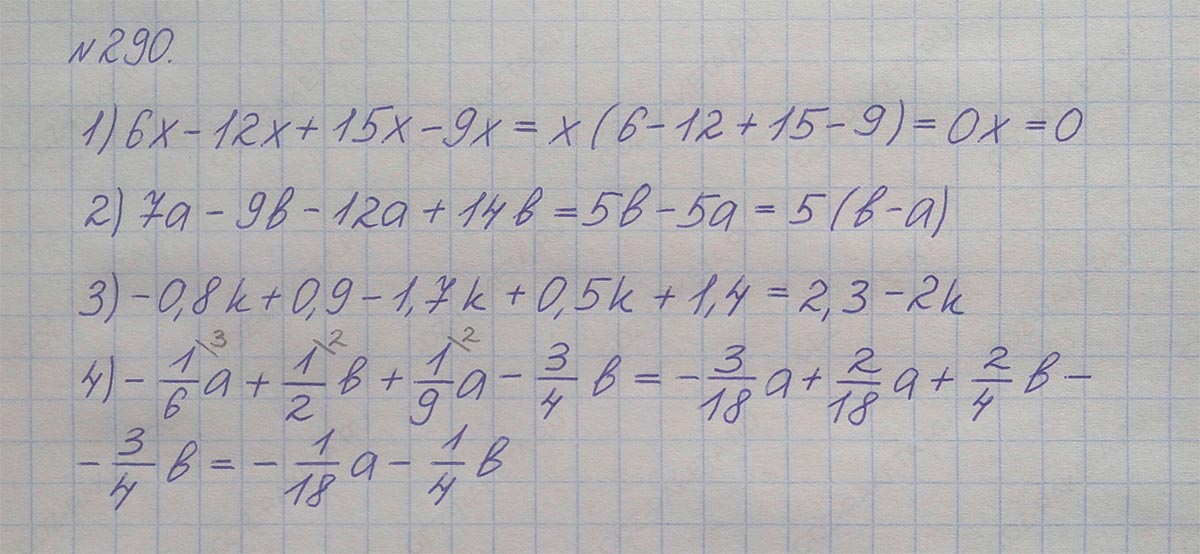 №290.
1) 6x - 12x + 15x - 9x = x(6 - 12 + 15 - 9) = 0x = 0
2) 7a - 9в - 12a + 14в = 5в - 5a = 5(в - a)
3) -0,8k + 0,9 - 1,7k + 0,5k + 1,4 = 2,3 - 2k
4) - 1/6\3 a + 1/2\2 в + 1/9\2 a - 3/4 в = - 3/18 a + 2/18 a + 2/4 в -
- 3/4 в = - 1/18 a - 1/4 в